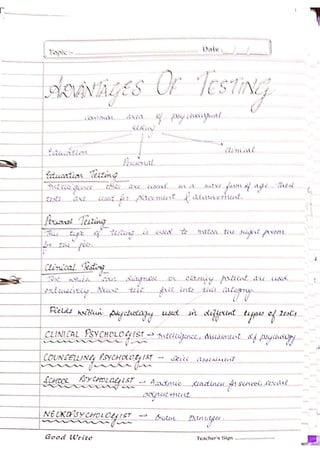 Topic :-
Date
ADVANTAGES OF TESTING
common area of psychological
testing
Education
Clinical
Personal
Education Testing
Intelligence are used in a form of age. These
tests are used for placement & advancement.
Personal Testing
This type of testing is used to the right person
for the job.
Clinical Testing
The which can diagnose or patient are used
extensively. test fall into this category.
Fields within psychology used in different types of tests
CLINICAL PSYCHOLOGIST → Intelligence, assessment of psychology
COUNSELLING PSYCHOLOGIST → Skill assessment
SCHOOL PSYCHOLOGIST → Academic readiness for school, social
adjustment
NEUROPSYCHOLOGIST → Brain Damages.
Good Write
Teacher's Sign